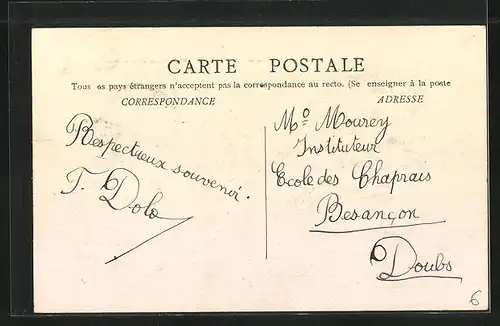 CARTE POSTALE
Tous es pays étrangers n'acceptent pas la correspondance au recto. (Se enseigner à la poste
CORRESPONDANCE
ADRESSE
Respectueux souvenir.
T. Dolo
Mo Mourey
Instituteur
Ecole des Chaprais
Besançon
Doubs
6